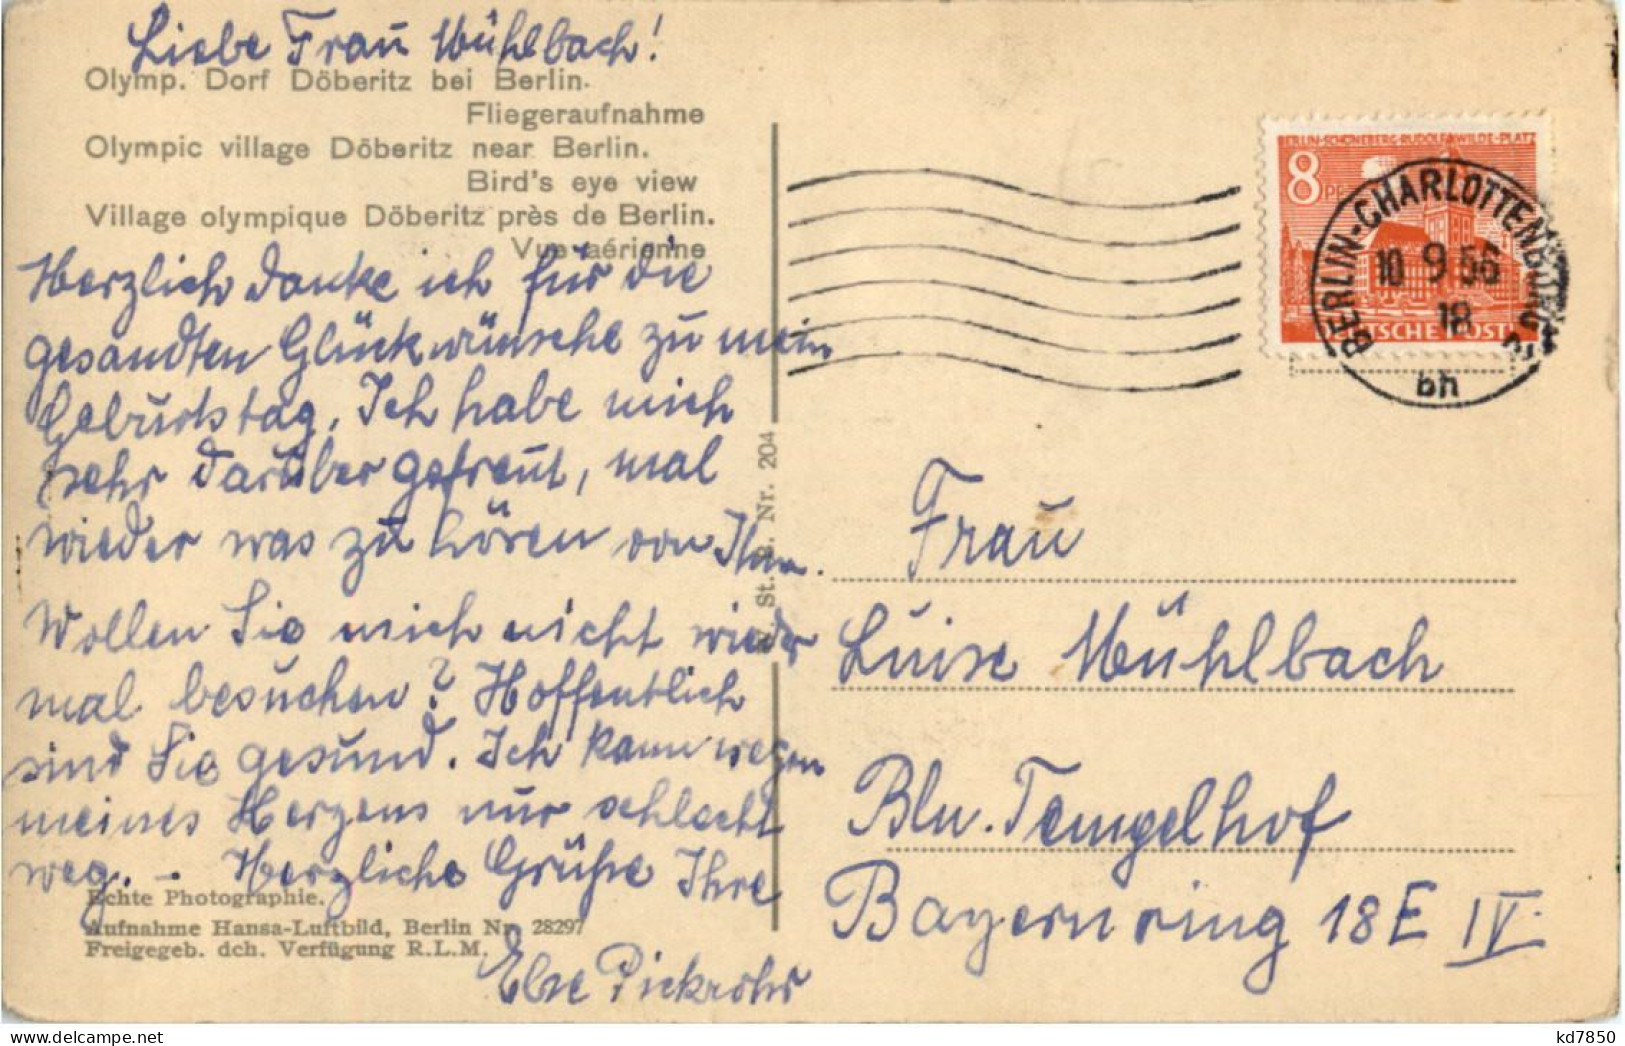 Liebe Frau Mühlbach!
Olymp. Dorf Döberitz bei Berlin.
Fliegeraufnahme
Olympic village Döberitz near Berlin.
Bird's eye view
Village olympique Döberitz près de Berlin.
Vue aérienne
Herzlich danke ich für die
gesandten Glückwünsche zu mein
Geburtstag. Ich habe mich
sehr darüber gefreut, mal
wieder was zu hören von Ihnen.
Wollen Sie mich nicht wieder
mal besuchen? Hoffentlich
sind Sie gesund. Ich kann wegen
meines Herzens nur schlecht
weg. - Herzliche Grüße Ihre
Else Pickrohr
Echte Photographie.
Aufnahme Hansa-Luftbild, Berlin Nr. 28297
Freigegeb. dch. Verfügung R.L.M.
St. B. Nr. 204
BERLIN-SCHÖNEBERG·RUDOLF-WILDE-PLATZ
8 PF
DEUTSCHE POST
BERLIN-CHARLOTTENBURG 2
10 9 56
18
bh
Frau
Luise Mühlbach
Bln. Tempelhof
Bayernring 18E IV.
kd7850